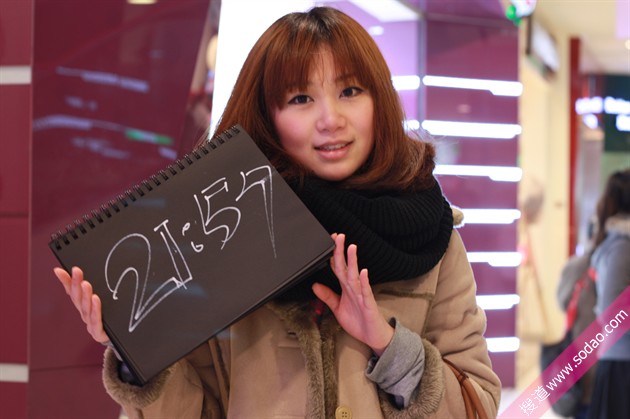 21:57
搜道 www.sodao.com